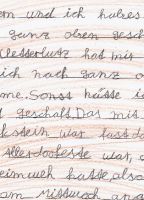 m und ich halbes
ganz oben gesch
Kletterlutz hat mir
ich nach ganz o
me. Sonst hätte ic
geschafft. Das mit
kstein war fast do
Allertollste war, d
eimweh hatte, also
am Mittwoch